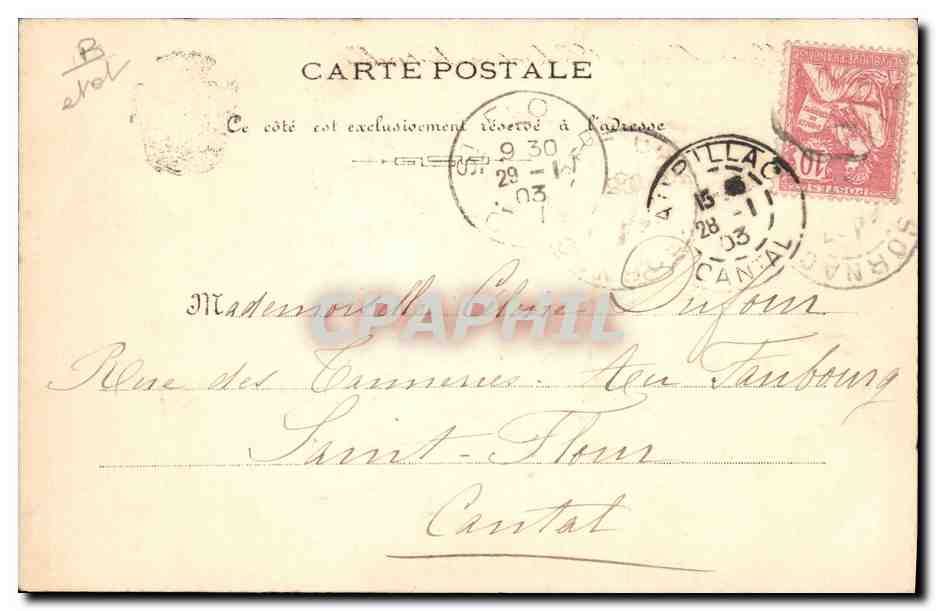 B
CARTE POSTALE
Ce côté est exclusivement réservé à l'adresse
ST FLO
9 30
29 -1
03
AURILLAC
15
28 -1
03
CANTAL
SORNAC
10
POSTES
Mademoiselle Dufour
Rue des Tanneries. Au Faubourg
Saint-Flour
Cantal
CPAPHIL